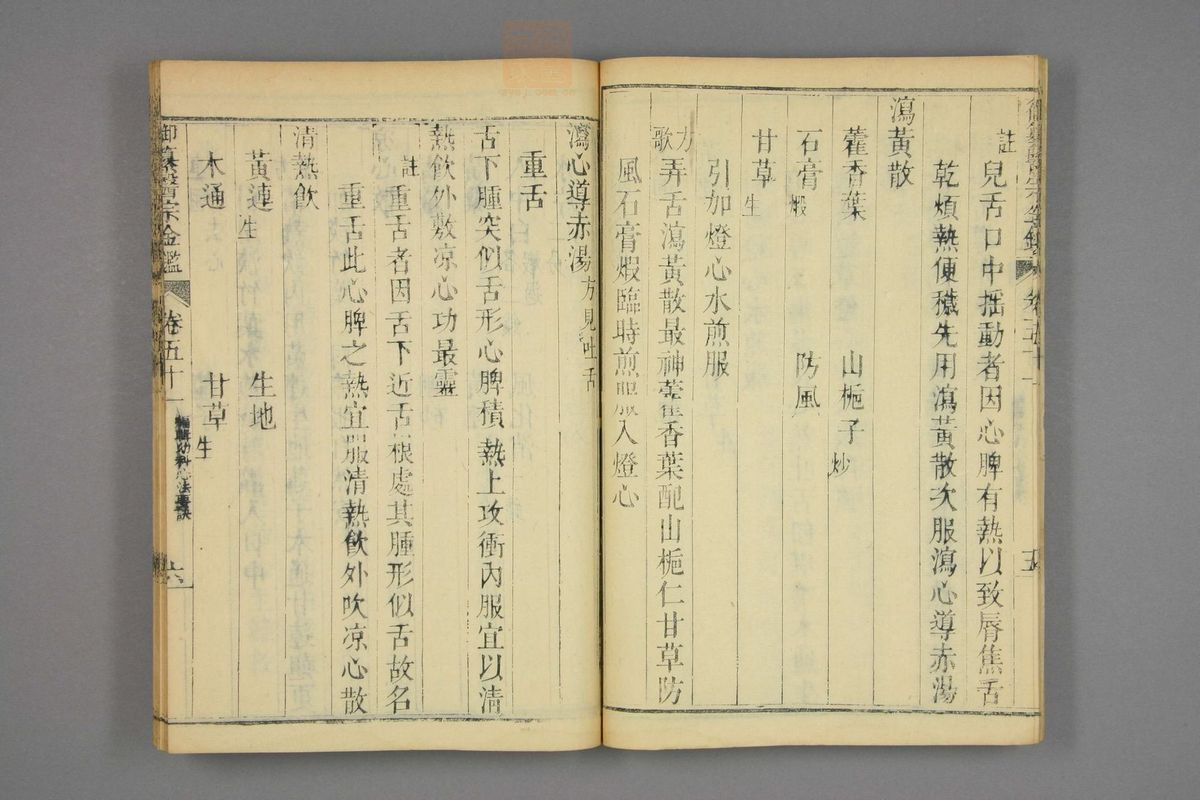 註 兒舌口中揺動者因心脾有熱以致脣焦舌
乾煩熱便穢先用瀉黃散次服瀉心導赤湯
瀉黃散
藿香葉 山梔子炒
石膏煅 防風
甘草生
引加燈心水煎服
方歌 弄舌瀉黃散最神藿香葉配山梔仁甘草防
風石膏煅臨時煎服入燈心
瀉心導赤湯方見吐舌
重舌
舌下腫突似舌形心脾積熱上攻衝內服宜以清
熱飲外敷凉心功最靈
註 重舌者因舌下近舌根處其腫形似舌故名
重舌此心脾之熱宜服清熱飲外吹凉心散
清熱飲
黃連生 生地
木通 甘草生
御纂醫宗金鑑 卷五十一 編輯幼科心法要訣 六